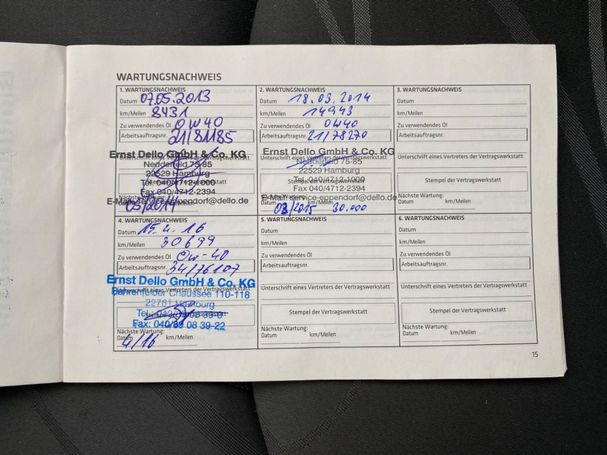 WARTUNGSNACHWEIS
1. WARTUNGSNACHWEIS
Datum 07.05.2013
km/Meilen 8431
Zu verwendendes Öl 0W40
Arbeitsauftragsnr. 21/81185
Ernst Dello GmbH & Co. KG
Nedderfeld 75-85
22529 Hamburg
Tel. 040/4712-1000
Fax 040/4712-2394
E-Mail
05/2014
2. WARTUNGSNACHWEIS
Datum 18.03.2014
km/Meilen 14943
Zu verwendendes Öl 0W40
Arbeitsauftragsnr. 21/78270
Ernst Dello GmbH & Co. KG
Unterschrift eines Vertreters der Vertragswerkstatt
Nedderfeld 75-85
22529 Hamburg
Stempel der Vertragswerkstatt
Tel. 040/4712-1000
Fax 040/4712-2394
E-Mail service-eppendorf@dello.de
03/2015 30.000
3. WARTUNGSNACHWEIS
Datum
km/Meilen
Zu verwendendes Öl
Arbeitsauftragsnr.
Unterschrift eines Vertreters der Vertragswerkstatt
Stempel der Vertragswerkstatt
Nächste Wartung:
Datum km/Meilen
4. WARTUNGSNACHWEIS
Datum 15.4.16
km/Meilen 30699
Zu verwendendes Öl
Arbeitsauftragsnr. 34/76107
Ernst Dello GmbH & Co. KG
Unterschrift eines Vertreters der Vertragswerkstatt
Bahrenfelder Chaussee 110-118
22761 Hamburg
Fax: 040/89 08 39-22
Nächste Wartung:
Datum 4/16 km/Meilen
5. WARTUNGSNACHWEIS
Datum
km/Meilen
Zu verwendendes Öl
Arbeitsauftragsnr.
Unterschrift eines Vertreters der Vertragswerkstatt
Stempel der Vertragswerkstatt
Nächste Wartung:
Datum km/Meilen
6. WARTUNGSNACHWEIS
Datum
km/Meilen
Zu verwendendes Öl
Arbeitsauftragsnr.
Unterschrift eines Vertreters der Vertragswerkstatt
Stempel der Vertragswerkstatt
Nächste Wartung:
Datum km/Meilen
15